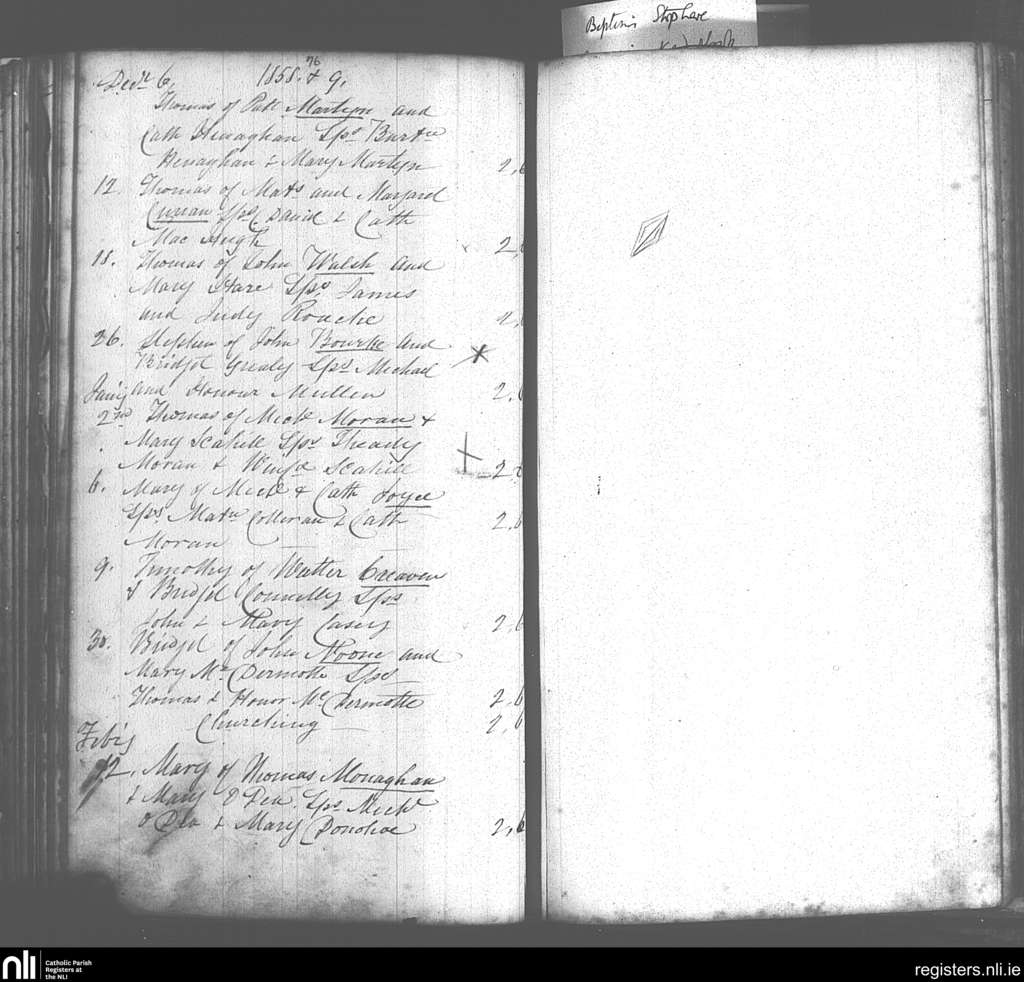 Baptisms Stop here
Decr 6. 1858. & 9.
76
Thomas of Patt Martyn and
Cath Henaghan Sps Burtw
Henaghan & Mary Martyn 2,6
12 Thomas of Mats and Margard
Curran Sps David & Cath
Mac Hugh 2,
18. Thomas of John Walsh and
Mary Hare Sps James
and Judy Roache 2,
26. Stephen of John Bourke and
Bridgt Grealy Sps Michael
Jany and Honour Mullen 2,6
2nd Thomas of Mickl Moran &
Mary Scahill Sps Thady
Moran & Winfd Scahill 2 6
6. Mary of Mickl & Cath Joyce
Sps Matw Colleran & Cath 2,6
Moran
9. Timothy of Walter Creaven
& Bridgt Connelly Sps
John & Mary Casey 2,6
30. Bridgt of John Noone and
Mary Mc Dermotte Sps
Thomas & Honor Mc Dermotte 2,6
Churching 2,6
Feby
12. Mary of Thomas Monaghan
& Mary O Dea. Sps Mickl
O Dea & Mary Donohoe 2,6
nli
Catholic Parish
Registers at
the NLI
registers.nli.ie